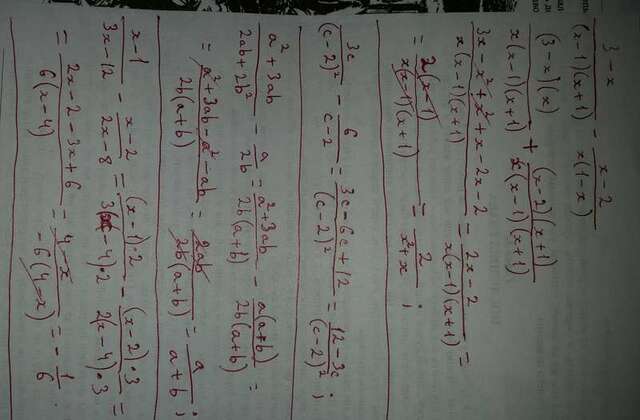 (3-x)/((x-1)(x+1)) - (x-2)/(x(1-x))
((3-x)(x))/(x(x-1)(x+1)) + ((x-2)(x+1))/(x(x-1)(x+1))
(3x-x²+x²+x-2x-2)/(x(x-1)(x+1)) = (2x-2)/(x(x-1)(x+1)) =
= (2(x-1))/(x(x-1)(x+1)) = 2/(x²+x) ;
3c/(c-2)² - 6/(c-2) = (3c-6c+12)/(c-2)² = (12-3c)/(c-2)² ;
(a²+3ab)/(2ab+2b²) - a/2b = (a²+3ab)/(2b(a+b)) - (a(a+b))/(2b(a+b)) =
= (a²+3ab-a²-ab)/(2b(a+b)) = 2ab/(2b(a+b)) = a/(a+b) ;
(x-1)/(3x-12) - (x-2)/(2x-8) = ((x-1)·2)/(3(x-4)·2) - ((x-2)·3)/(2(x-4)·3) =
= (2x-2-3x+6)/(6(x-4)) = (4-x)/(-6(4-x)) = -1/6 .